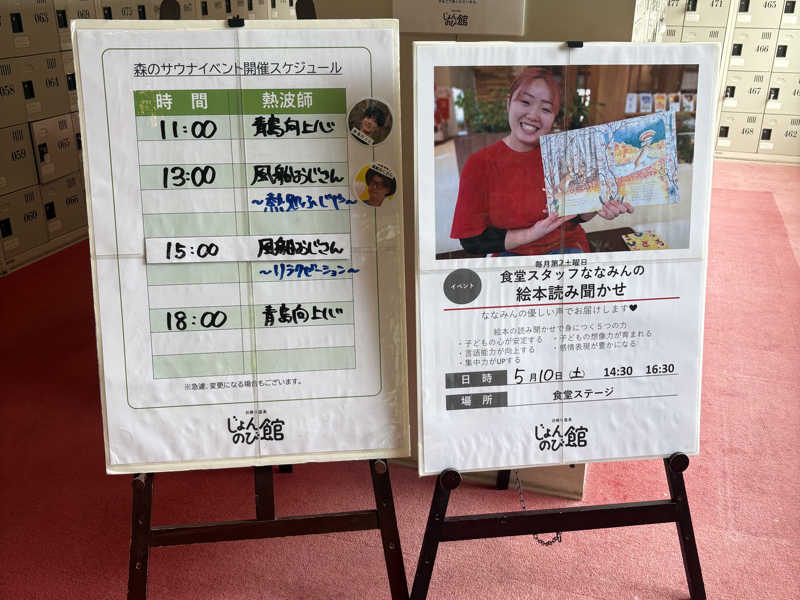 森のサウナイベント開催スケジュール
時間 熱波師
11:00 青島向上心
13:00 風船おじさん
15:00 風船おじさん
～リラクゼーション～
18:00 青島向上心
※急遽、変更になる場合もございます。
じょんのび館
毎月第2土曜日
イベント
食堂スタッフななみんの
絵本読み聞かせ
ななみんの優しい声でお届けします♥
絵本の読み聞かせで身につく5つの力
・子どもの心が安定する ・子どもの想像力が育まれる
・言語能力が向上する ・感情表現が豊かになる
・集中力がUPする
日時 5月10日(土) 14:30 16:30
場所 食堂ステージ
じょんのび館
じょんのび館
058
059
060
065
066
471
466
467
468
465